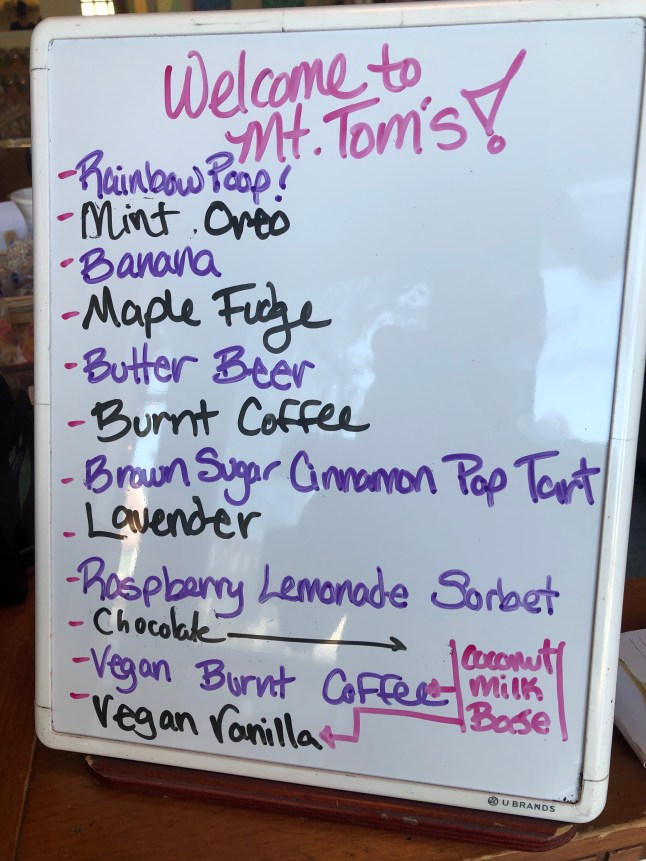 Welcome to
Mt. Tom's!
- Rainbow Poop!
- Mint Oreo
- Banana
- Maple Fudge
- Butter Beer
- Burnt Coffee
- Brown Sugar Cinnamon Pop Tart
- Lavender
- Raspberry Lemonade Sorbet
- Chocolate
- Vegan Burnt Coffee
- Vegan Vanilla
Coconut
Milk
Base
U BRANDS